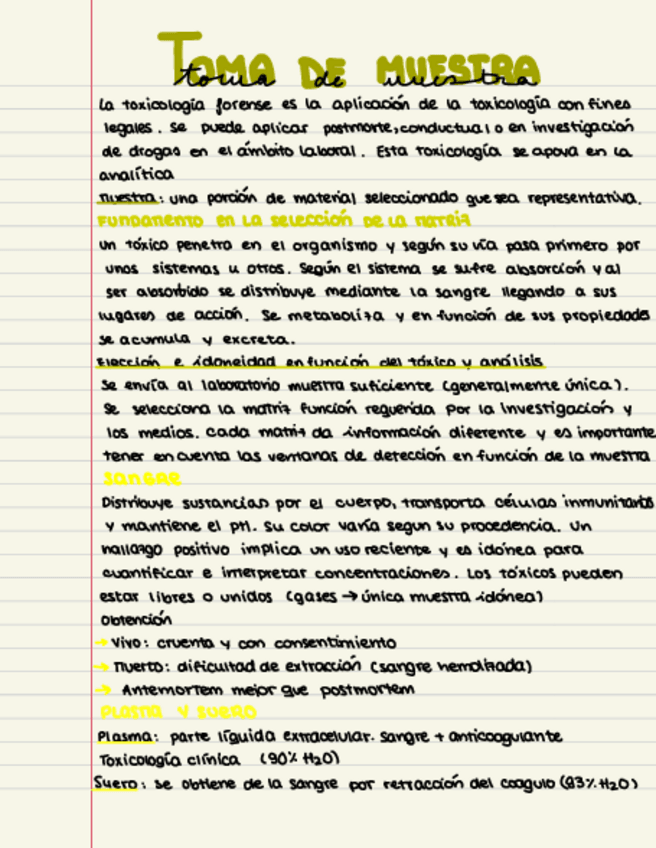 TOMA DE MUESTRA
toma de muestra
La toxicología forense es la aplicación de la toxicología con fines
legales. Se puede aplicar postmorte, conductual o en investigación
de drogas en el ámbito laboral. Esta toxicología se apoya en la
analítica
Muestra: una porción de material seleccionado que sea representativa.
FUNDAMENTO EN LA SELECCIÓN DE LA MATRIZ
Un tóxico penetra en el organismo y según su vía pasa primero por
unos sistemas u otros. Según el sistema se sufre absorción y al
ser absorbido se distribuye mediante la sangre llegando a sus
lugares de acción. Se metaboliza y en función de sus propiedades
se acumula y excreta.
Elección e idoneidad en función del tóxico y análisis
Se envía al laboratorio muestra suficiente (generalmente única).
Se selecciona la matriz función requerida por la investigación y
los medios. Cada matriz da información diferente y es importante
tener en cuenta las ventanas de detección en función de la muestra
SANGRE
Distribuye sustancias por el cuerpo, transporta células inmunitarias
y mantiene el pH. Su color varía segun su procedencia. Un
hallazgo positivo implica un uso reciente y es idónea para
cuantificar e interpretar concentraciones. Los tóxicos pueden
estar libres o unidos (gases → única muestra idónea)
Obtención
→ Vivo: cruenta y con consentimiento
→ Muerto: dificultad de extracción (sangre hemolizada)
→ Antemortem mejor que postmortem
PLASMA Y SUERO
Plasma: parte líquida extracelular. Sangre + anticoagulante
Toxicología clínica (90% H2O)
Suero: se obtiene de la sangre por retracción del coagulo (93% H2O)